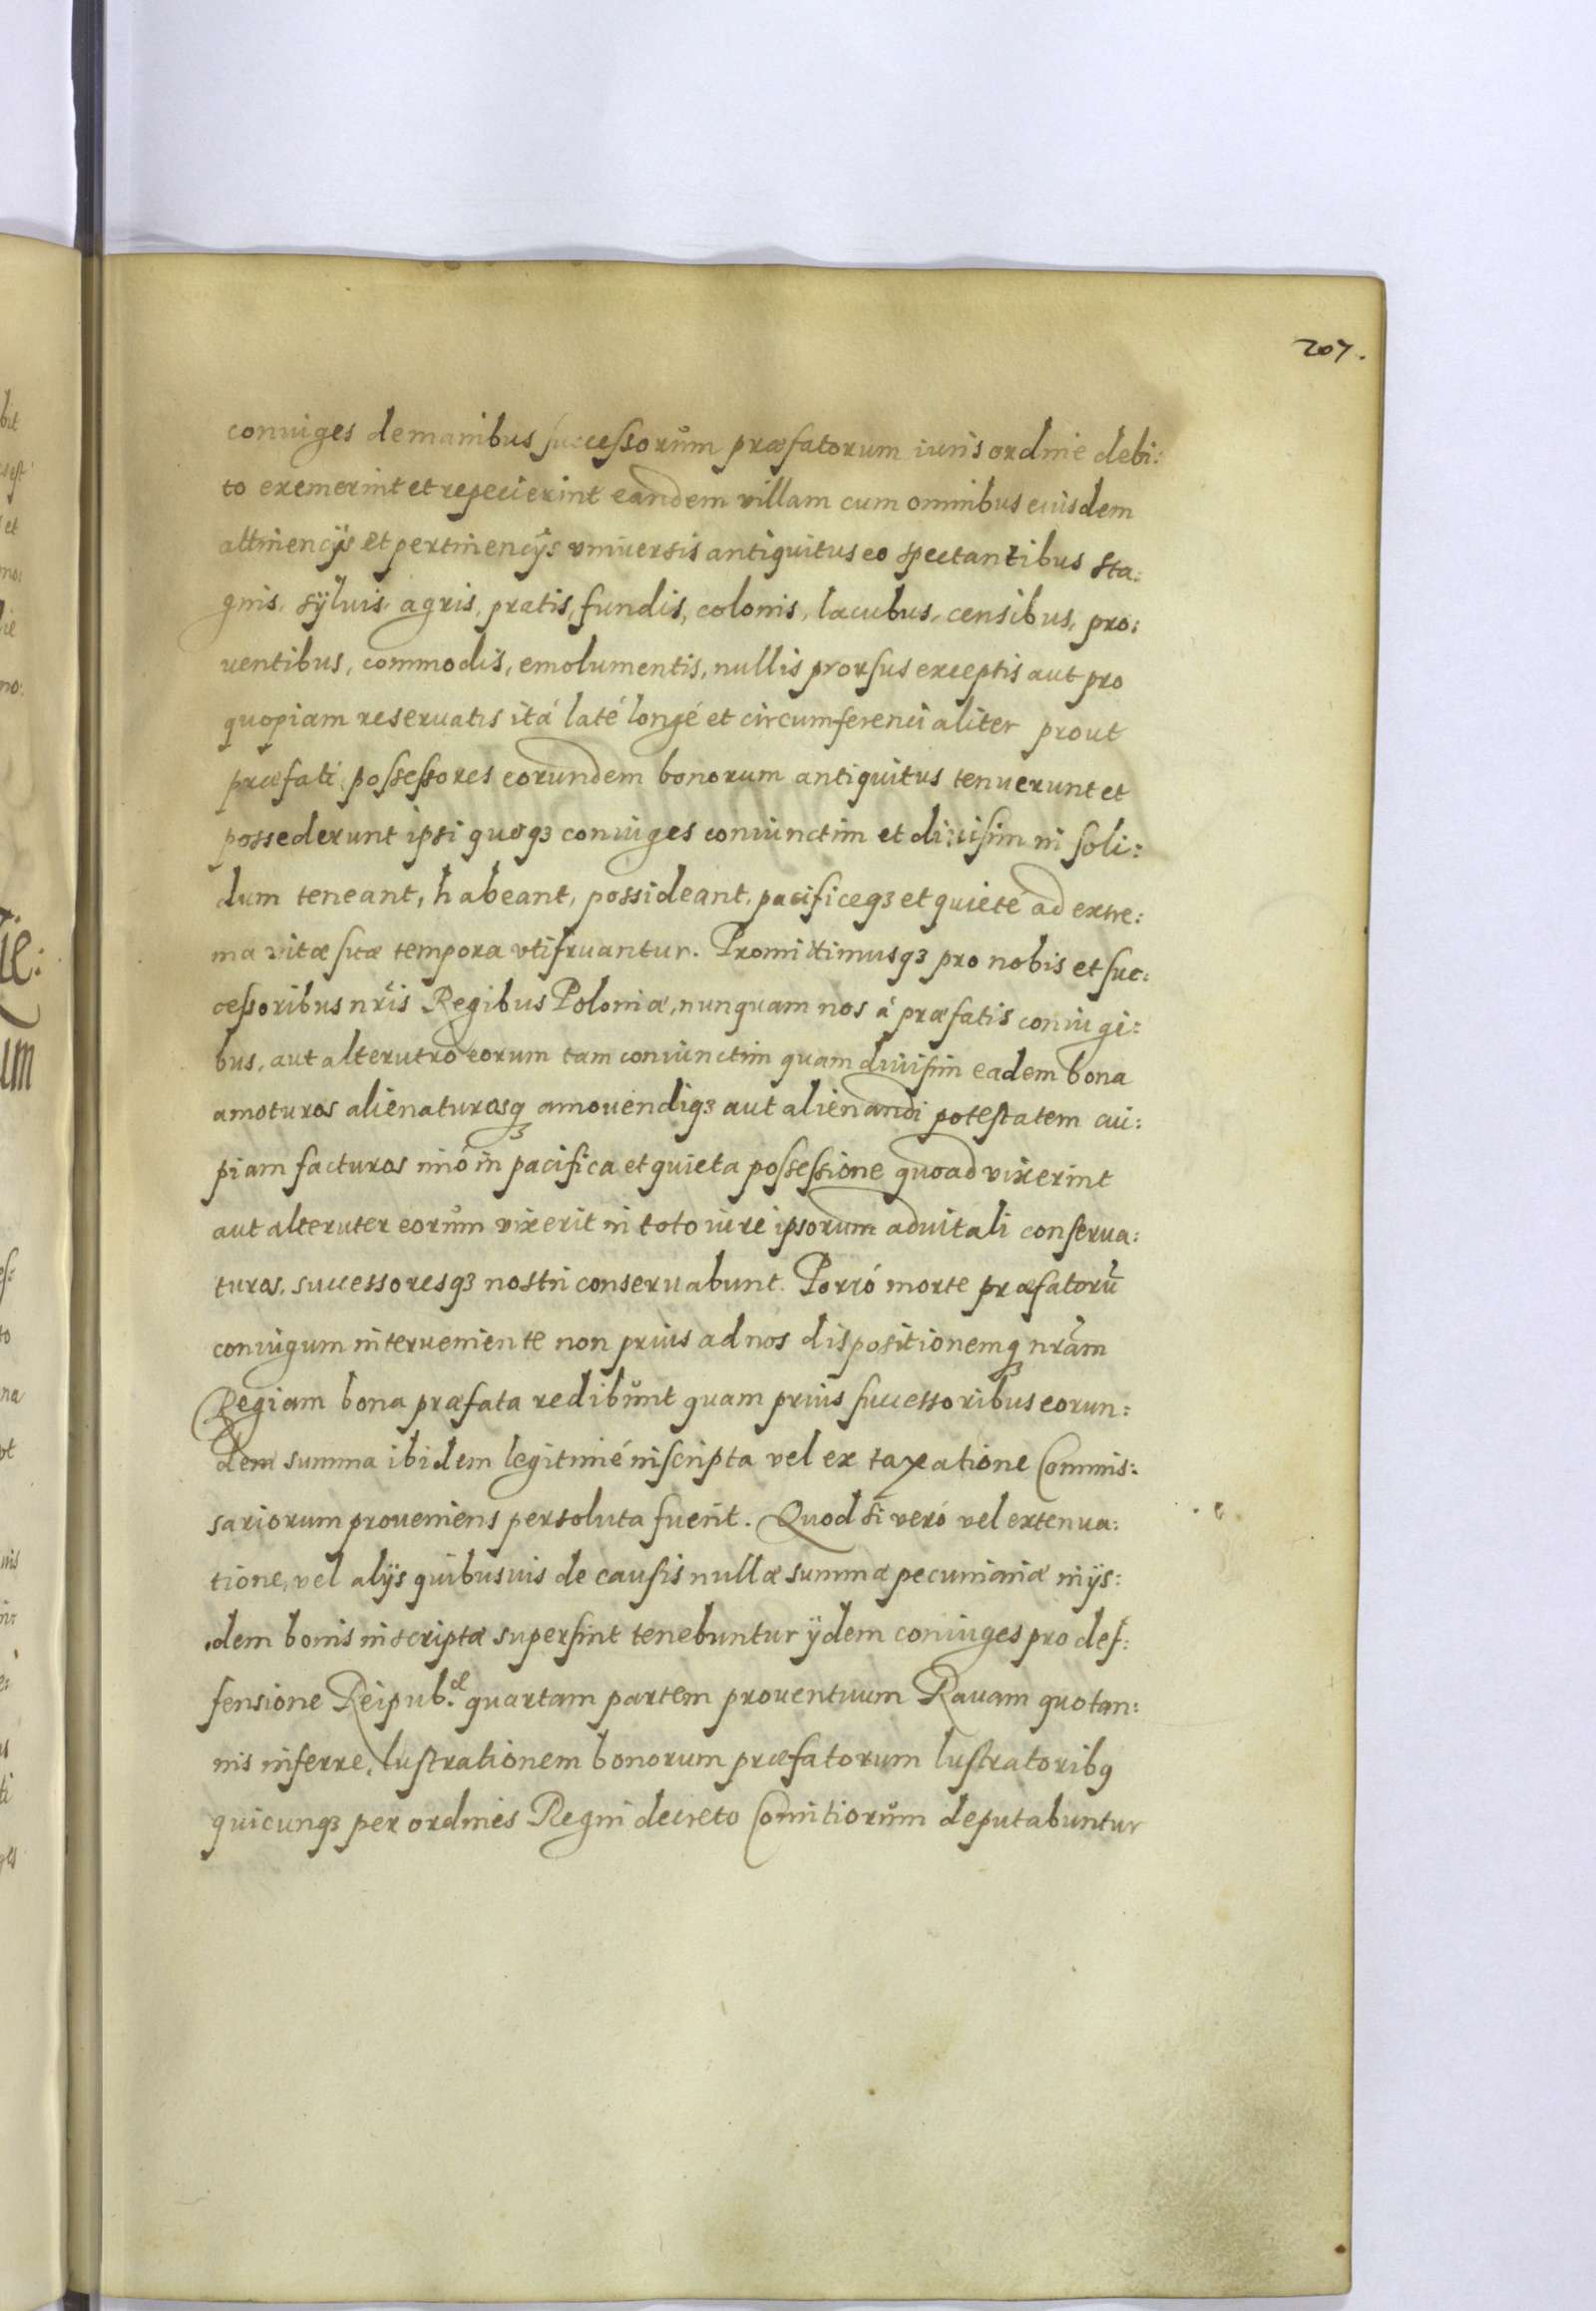 207.
coniuges de manibus successorum præfatorum iuris ordine debi:
to exemerint et repecierint eandem villam cum omnibus eiusdem
attinencÿs et pertinencÿs vniuersis antiquitus eo spectantibus sta:
gnis, sÿluis, agris, pratis, fundis, colonis, lacubus, censibus, pro:
uentibus, commodis, emolumentis, nullis prorsus exceptis aut pro
quopiam reseruatis itá laté longé et circumferencialiter prout
præfati possessores eorundem bonorum antiquitus tenuerunt et
possederunt ipsi quoqз coniuges coniunctim et diuisim in soli:
dum teneant, habeant, possideant, pacificeqз et quieté ad extre:
ma vitæ suæ tempora vtifruantur. Promittimusqз pro nobis et suc:
cessoribus nr̃is Regibus Poloniæ, nunquam nos á præfatis coniugi:
bus, aut alterutro eorum tam coniunctim quam diuisim eadem bona
amoturos alienaturosqз amouendiqз aut alienandi potestatem cui:
piam facturos imó in pacifica et quieta possessione quoad vixerint
aut alteruter eorum vixerit in toto iure ipsorum aduitali conserua:
turos, successoresqз nostri conseruabunt. Porró morte præfatorũ
coniugum interueniente non prius ad nos dispositionemqз nr̃am
Regiam bona præfata redibunt quam prius successoribus eorun:
dem summa ibidem legitimé inscripta vel ex taxatione Commis:
sariorum proueniens persoluta fuerit. Quod si veró vel extenua:
tione, vel alÿs quibusuis de causis nullæ summæ pecuniariæ in ÿs:
dem bonis inscriptæ supersint tenebuntur ÿdem coniuges pro def:
fensione Reipub.æ quartam partem prouentuum Rauam quotan:
nis inferre, lustrationem bonorum præfatorum lustratoribꝯ
quicunqз per ordines Regni decreto Comitiorum deputabuntur